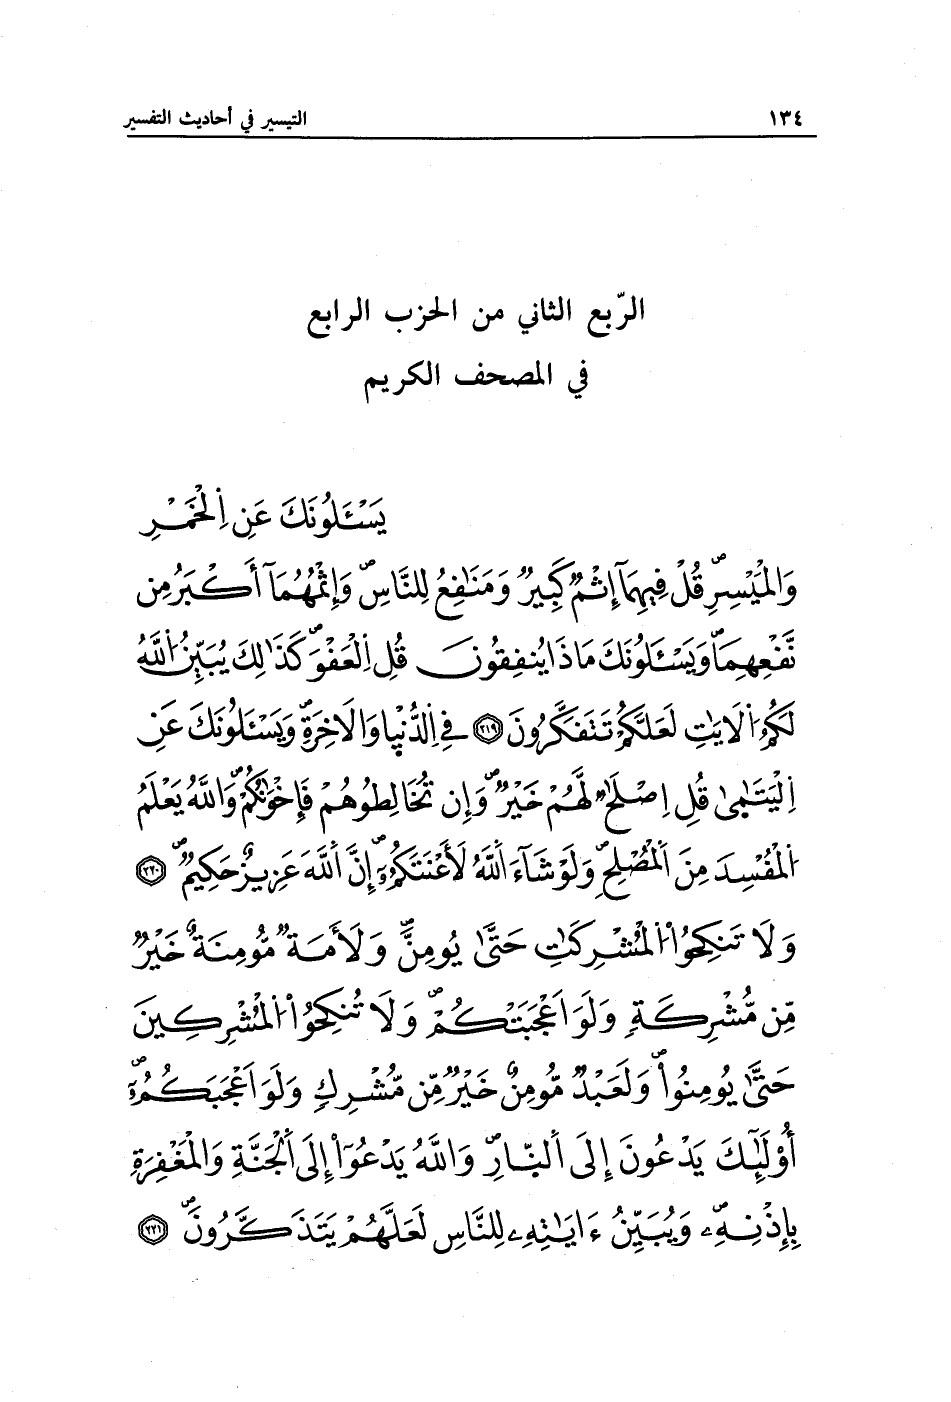 ١٣٤
التيسير في أحاديث التفسير
الرّبع الثاني من الحزب الرابع
في المصحف الكريم
يَسْـَٔلُونَكَ عَنِ اِ۬لْخَمْرِ
وَالْمَيْسِرِۖ قُلْ فِيهِمَآ إِثْمٞ كَبِيرٞ وَمَنَٰفِعُ لِلنَّاسِۖ وَإِثْمُهُمَآ أَكْبَرُ مِن
نَّفْعِهِمَاۖ وَيَسْـَٔلُونَكَ مَاذَا يُنفِقُونَ قُلِ اِ۬لْعَفْوَۖ كَذَٰلِكَ يُبَيِّنُ اُ۬للَّهُ
لَكُمُ اُ۬لَايَٰتِ لَعَلَّكُمْ تَتَفَكَّرُونَ ٢١٩ فِي اِ۬لدُّنْيَا وَالَاخِرَةِۖ وَيَسْـَٔلُونَكَ عَنِ
اِ۬لْيَتَٰمَىٰ قُلِ اِصْلَٰحٞ لَّهُمْ خَيْرٞۖ وَإِن تُخَالِطُوهُمْ فَإِخْوَٰنُكُمْۖ وَاللَّهُ يَعْلَمُ
اُ۬لْمُفْسِدَ مِنَ اَ۬لْمُصْلِحِۖ وَلَوْ شَآءَ اَ۬للَّهُ لَأَعْنَتَكُمُۥٓۖ إِنَّ اَ۬للَّهَ عَزِيزٌ حَكِيمٞۖ ٢٢٠
وَلَا تَنكِحُواْ اُ۬لْمُشْرِكَٰتِ حَتَّىٰ يُومِنَّۖ وَلَأَمَةٞ مُّومِنَةٌ خَيْرٞ
مِّن مُّشْرِكَةٖ وَلَوَ اَعْجَبَتْكُمْۖ وَلَا تُنكِحُواْ اُ۬لْمُشْرِكِينَ
حَتَّىٰ يُومِنُواْۖ وَلَعَبْدٞ مُّومِنٌ خَيْرٞ مِّن مُّشْرِكٖ وَلَوَ اَعْجَبَكُمُۥٓۖ
أُوْلَٰٓئِكَ يَدْعُونَ إِلَى اَ۬لنَّارِۖ وَاللَّهُ يَدْعُوٓاْ إِلَى اَ۬لْجَنَّةِ وَالْمَغْفِرَةِ
بِإِذْنِهِۦۖ وَيُبَيِّنُ ءَايَٰتِهِۦ لِلنَّاسِ لَعَلَّهُمْ يَتَذَكَّرُونَۖ ٢٢١